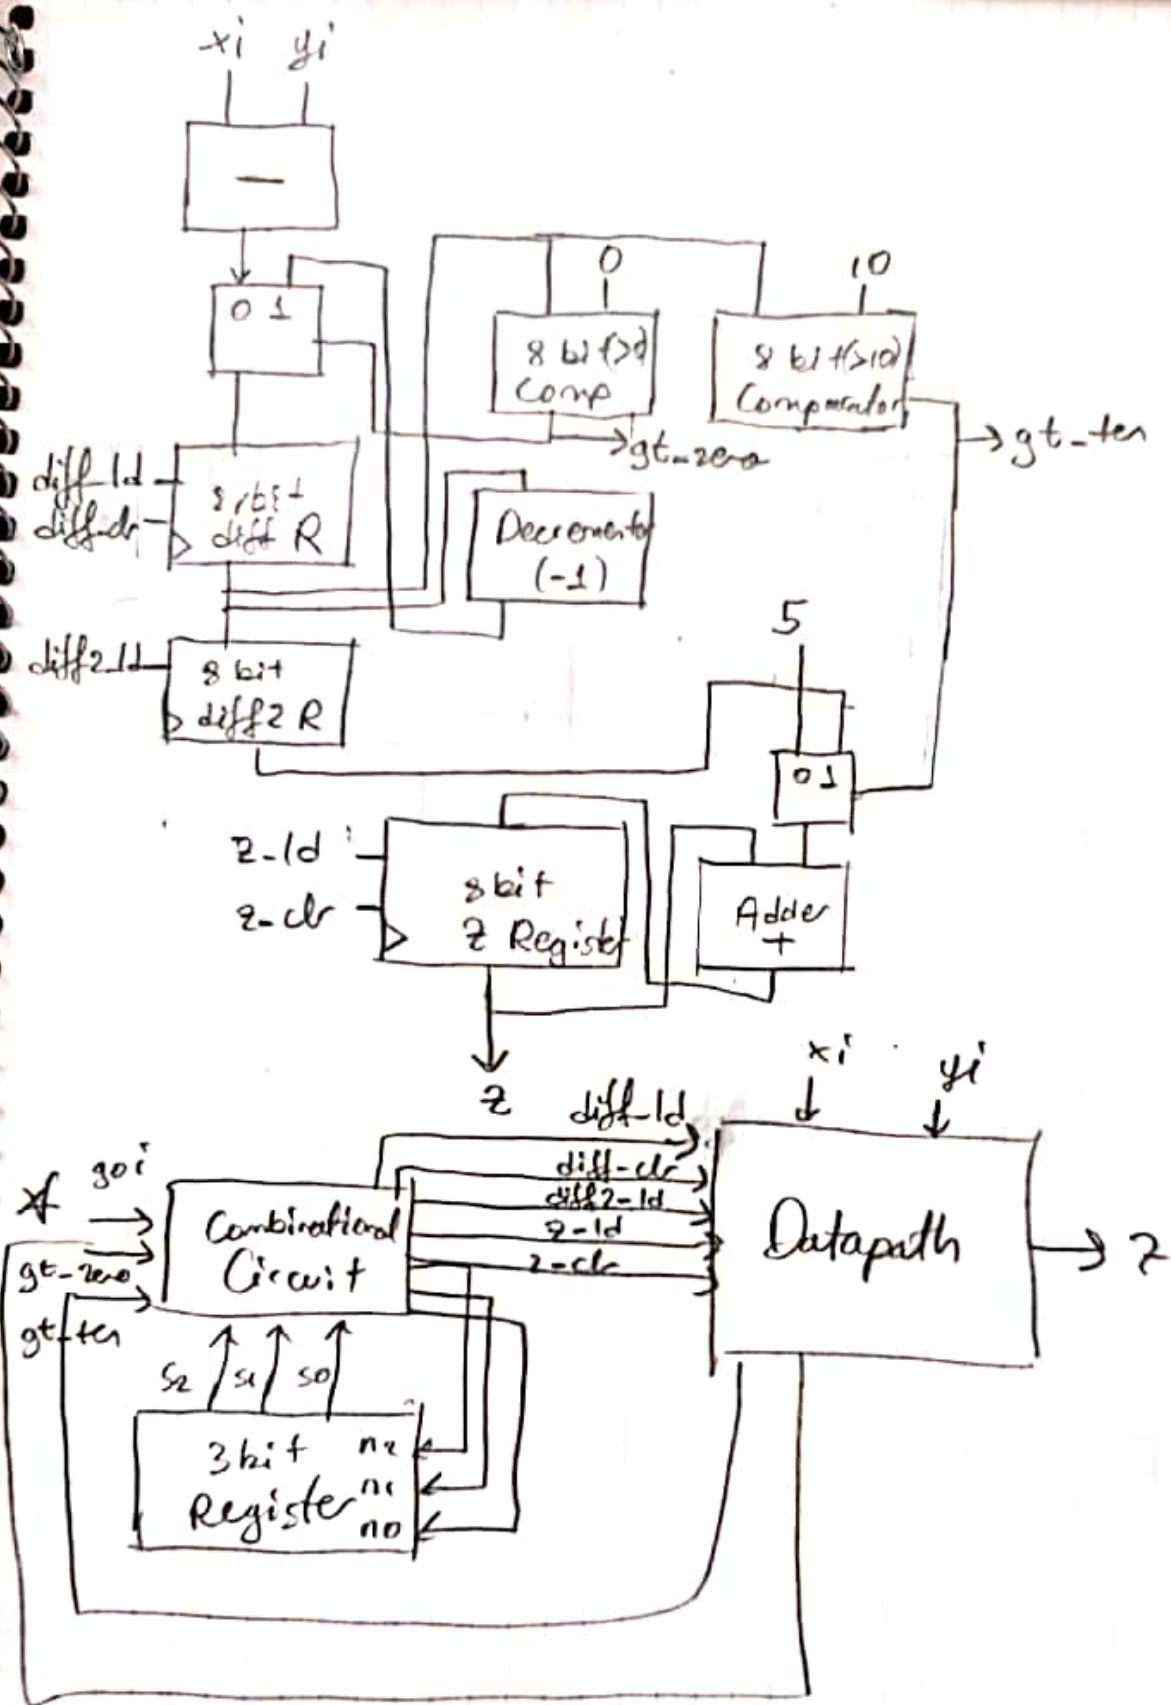 xi yi
−
0 1
0
10
8 bit(>0)
Comp
8 bit(>10)
Comparator
gt_zero
gt_ten
diff_ld
diff_clr
8 bit
diff R
Decrementor
(-1)
5
diff2_ld
8 bit
diff2 R
0 1
z_ld
z_clr
8 bit
Z Register
Adder
+
z
xi
yi
diff_ld
diff_clr
diff2_ld
z_ld
z_clr
goi
gt_zero
gt_ten
Combinational
Circuit
Datapath
z
s2 s1 s0
3 bit
Register
n2
n1
n0